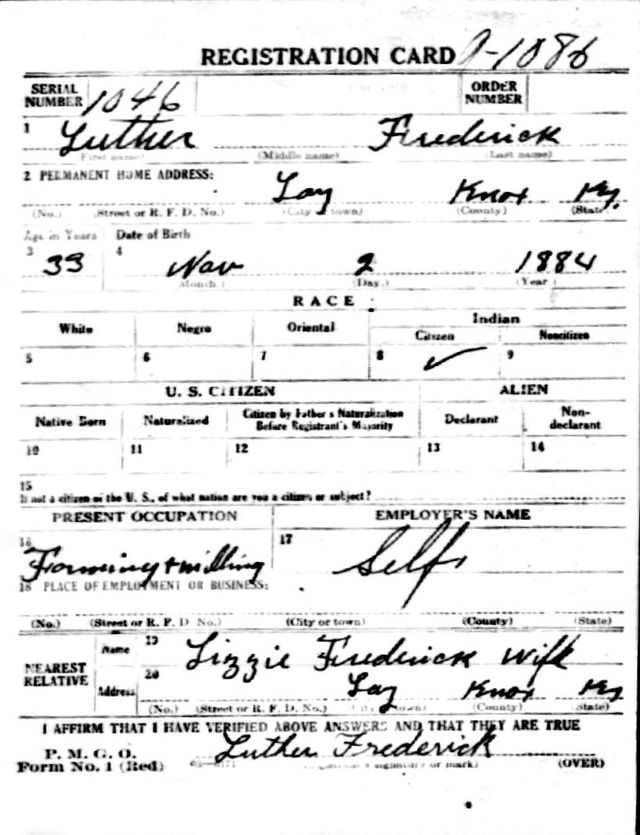 REGISTRATION CARD 9-1086
SERIAL NUMBER 1046 ORDER NUMBER
1 Luther Frederick
(First name) (Middle name) (Last name)
2 PERMANENT HOME ADDRESS:
Lay Knox Ky.
(No.) (Street or R. F. D. No.) (City or town) (County) (State)
Age in Years Date of Birth
3 33 4 Nov 2 1884
(Month.) (Day.) (Year)
RACE
White Negro Oriental Indian
Citizen Noncitizen
5 6 7 8 ✓ 9
U. S. CITIZEN ALIEN
Native Born Naturalized Citizen by Father's Naturalization Before Registrant's Majority Declarant Non-declarant
10 11 12 13 14
15
If not a citizen of the U. S., of what nation are you a citizen or subject?
PRESENT OCCUPATION EMPLOYER'S NAME
16 Farming + milling 17 Self
18 PLACE OF EMPLOYMENT OR BUSINESS:
(No.) (Street or R. F. D. No.) (City or town) (County) (State)
NEAREST RELATIVE Name 19 Lizzie Frederick Wife
Address 20 Lay Knox Ky
(No.) (Street or R. F. D. No.) (City or town) (County) (State)
I AFFIRM THAT I HAVE VERIFIED ABOVE ANSWERS AND THAT THEY ARE TRUE
P. M. G. O.
Form No. 1 (Red) Luther Frederick
(Registrant's signature or mark) (OVER)